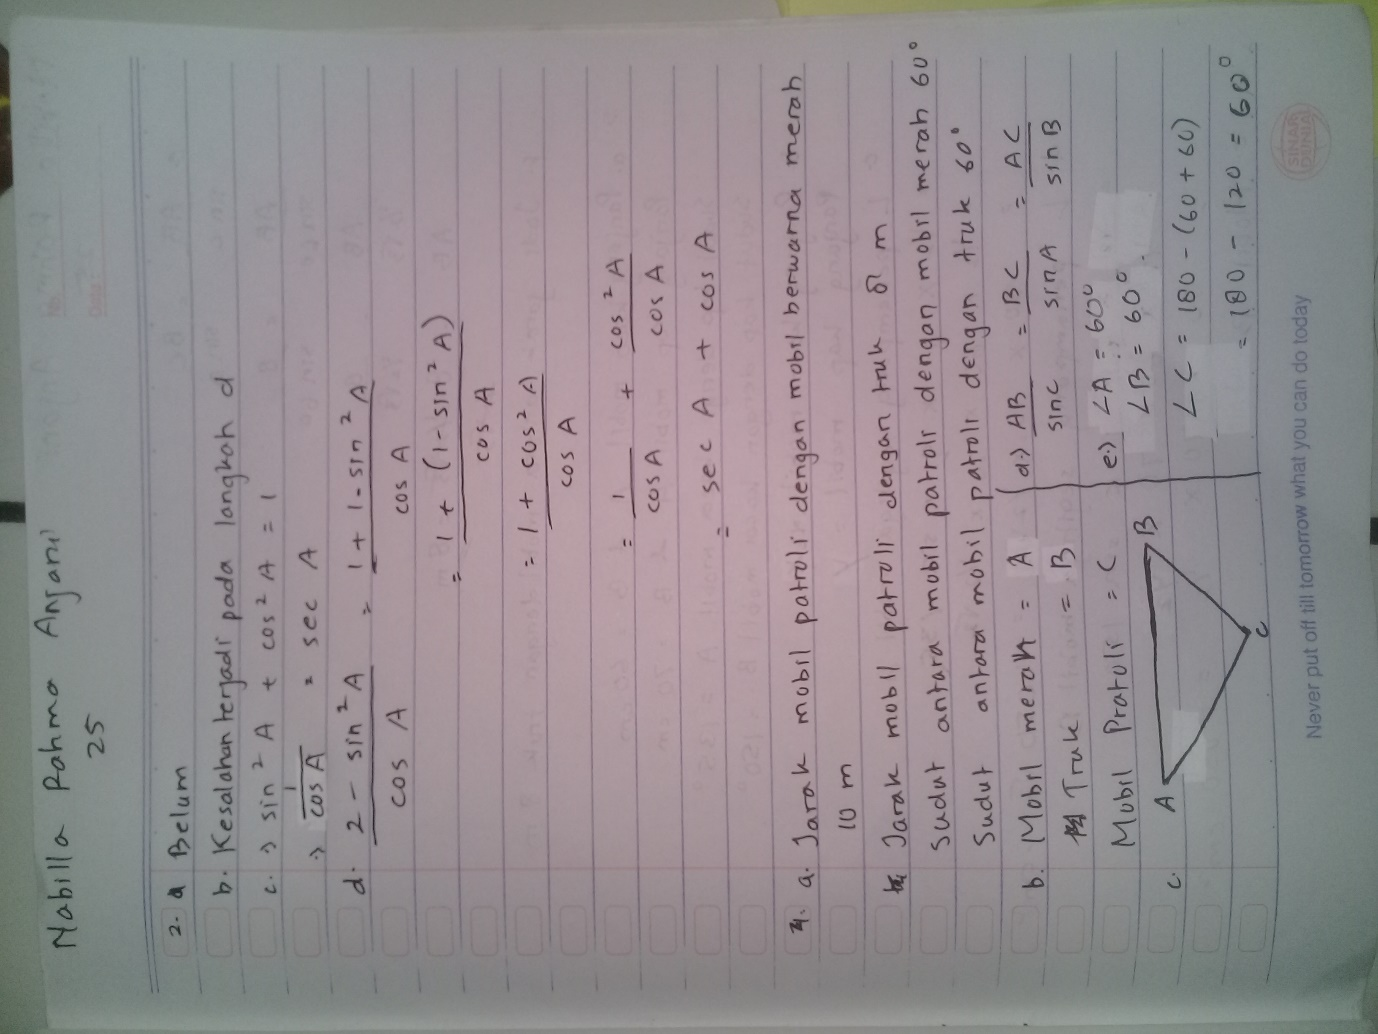 Nabilla Rahma Anjani
25
2. a Belum
b. Kesalahan terjadi pada langkah d
c. → sin² A + cos² A = 1
→ 1/cos A = sec A
d. 2 - sin² A / cos A = 1 + 1 - sin² A / cos A
= 1 + (1 - sin² A) / cos A
= 1 + cos² A / cos A
= 1 / cos A + cos² A / cos A
= sec A + cos A
4. a. Jarak mobil patroli dengan mobil berwarna merah
10 m
Jarak mobil patroli dengan truk 8 m
Sudut antara mobil patroli dengan mobil merah 60°
Sudut antara mobil patroli dengan truk 60°
b. Mobil merah = A
Truk = B
Mobil Pratoli = C
c. A B C
d.) AB / sin C = BC / sin A = AC / sin B
e.) ∠A = 60°
∠B = 60°.
∠C = 180 - (60 + 60)
= 180 - 120 = 60°
Never put off till tomorrow what you can do today
SINAR DUNIA